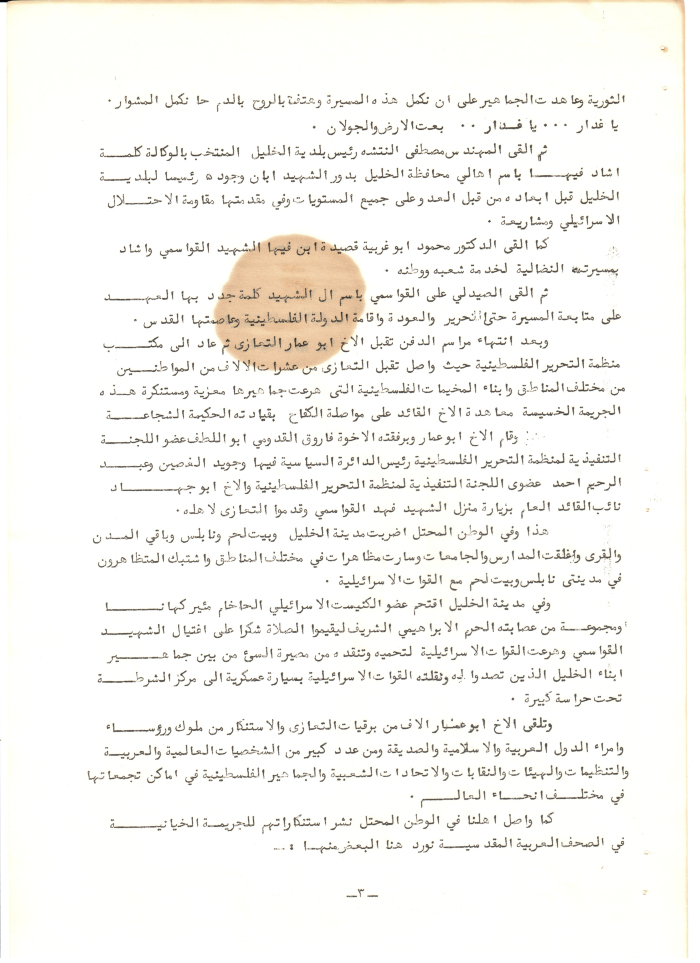 الثورية وعاهدت الجماهير على ان نكمل هذه المسيرة وهتفة بالروح بالدم حا نكمل المشوار .
يا غدار ... يا غدار .. بعت الارض والجولان .
ثم القى المهندس مصطفى النتشه رئيس بلدية الخليل المنتخب بالوكالة كلمة
اشاد فيها باسم اهالي محافظة الخليل بدور الشهيد ابان وجوده رئيسا لبلدية
الخليل قبل ابعاده من قبل العدو على جميع المستويات وفي مقدمتها مقاومة الاحتلال
الاسرائيلي ومشاريعة .
كما القى الدكتور محمود ابو غربية قصيدة ابن فيها الشهيد القواسمي واشاد
بمسيرته النضالية لخدمة شعبه ووطنه .
ثم القى الصيدلي على القواسمي باسم ال الشهيد كلمة جدد بها العهد
على متابعة المسيرة حتى التحرير والعودة واقامة الدولة الفلسطينية وعاصمتها القدس .
وبعد انتهاء مراسم الدفن تقبل الاخ ابو عمار التعازى ثم عاد الى مكتب
منظمة التحرير الفلسطينية حيث واصل تقبل التعازى من عشرات الالاف من المواطنين
من مختلف المناطق وابناء المخيمات الفلسطينية التى هرعت جماهيرها معزية ومستنكرة هذه
الجريمة الخسيسة معاهدة الاخ القائد على مواصلة الكفاح بقيادته الحكيمة الشجاعة
وقام الاخ ابو عمار وبرفقته الاخوة فاروق القدومي ابو اللطف عضو اللجنة
التنفيذية لمنظمة التحرير الفلسطينية رئيس الدائرة السياسية فيها وجويد الغصين وعبد
الرحيم احمد عضوى اللجنة التنفيذية لمنظمة التحرير الفلسطينية والاخ ابو جهاد
نائب القائد العام بزيارة منزل الشهيد فهد القواسمي وقدموا التعازى لاهله .
هذا وفي الوطن المحتل اضربت مدينة الخليل وبيت لحم ونابلس وباقي المدن
والقرى واغلقت المدارس والجامعات وسارت مظاهرات في مختلف المناطق واشتبك المتظاهرون
في مدينتى نابلس وبيت لحم مع القوات الاسرائيلية .
وفي مدينة الخليل اقتحم عضو الكنيست الاسرائيلي الحاخام مئير كهانا
ومجموعة من عصابته الحرم الابراهيمي الشريف ليقيموا الصلاة شكرا على اغتيال الشهيد
القواسمي وهرعت القوات الاسرائيلية لتحميه وتنقذه من مصيرة السئ من بين جماهير
ابناء الخليل الذين تصدوا له ونقلته القوات الاسرائيلية بسيارة عسكرية الى مركز الشرطة
تحت حراسة كبيرة .
وتلقى الاخ ابو عمار الاف من برقيات التعازى والاستنكار من ملوك ورؤساء
وامراء الدول العربية والاسلامية والصديقة ومن عدد كبير من الشخصيات العالمية والعربية
والتنظيمات والهيئات والنقابات والاتحادات الشعبية والجماهير الفلسطينية في اماكن تجمعاتها
في مختلف انحاء العالم .
كما واصل اهلنا في الوطن المحتل نشر استنكاراتهم للجريمة الخيانية
في الصحف العربية المقدسية نورد هنا البعض منها : ــ
ــ ٣ ــ